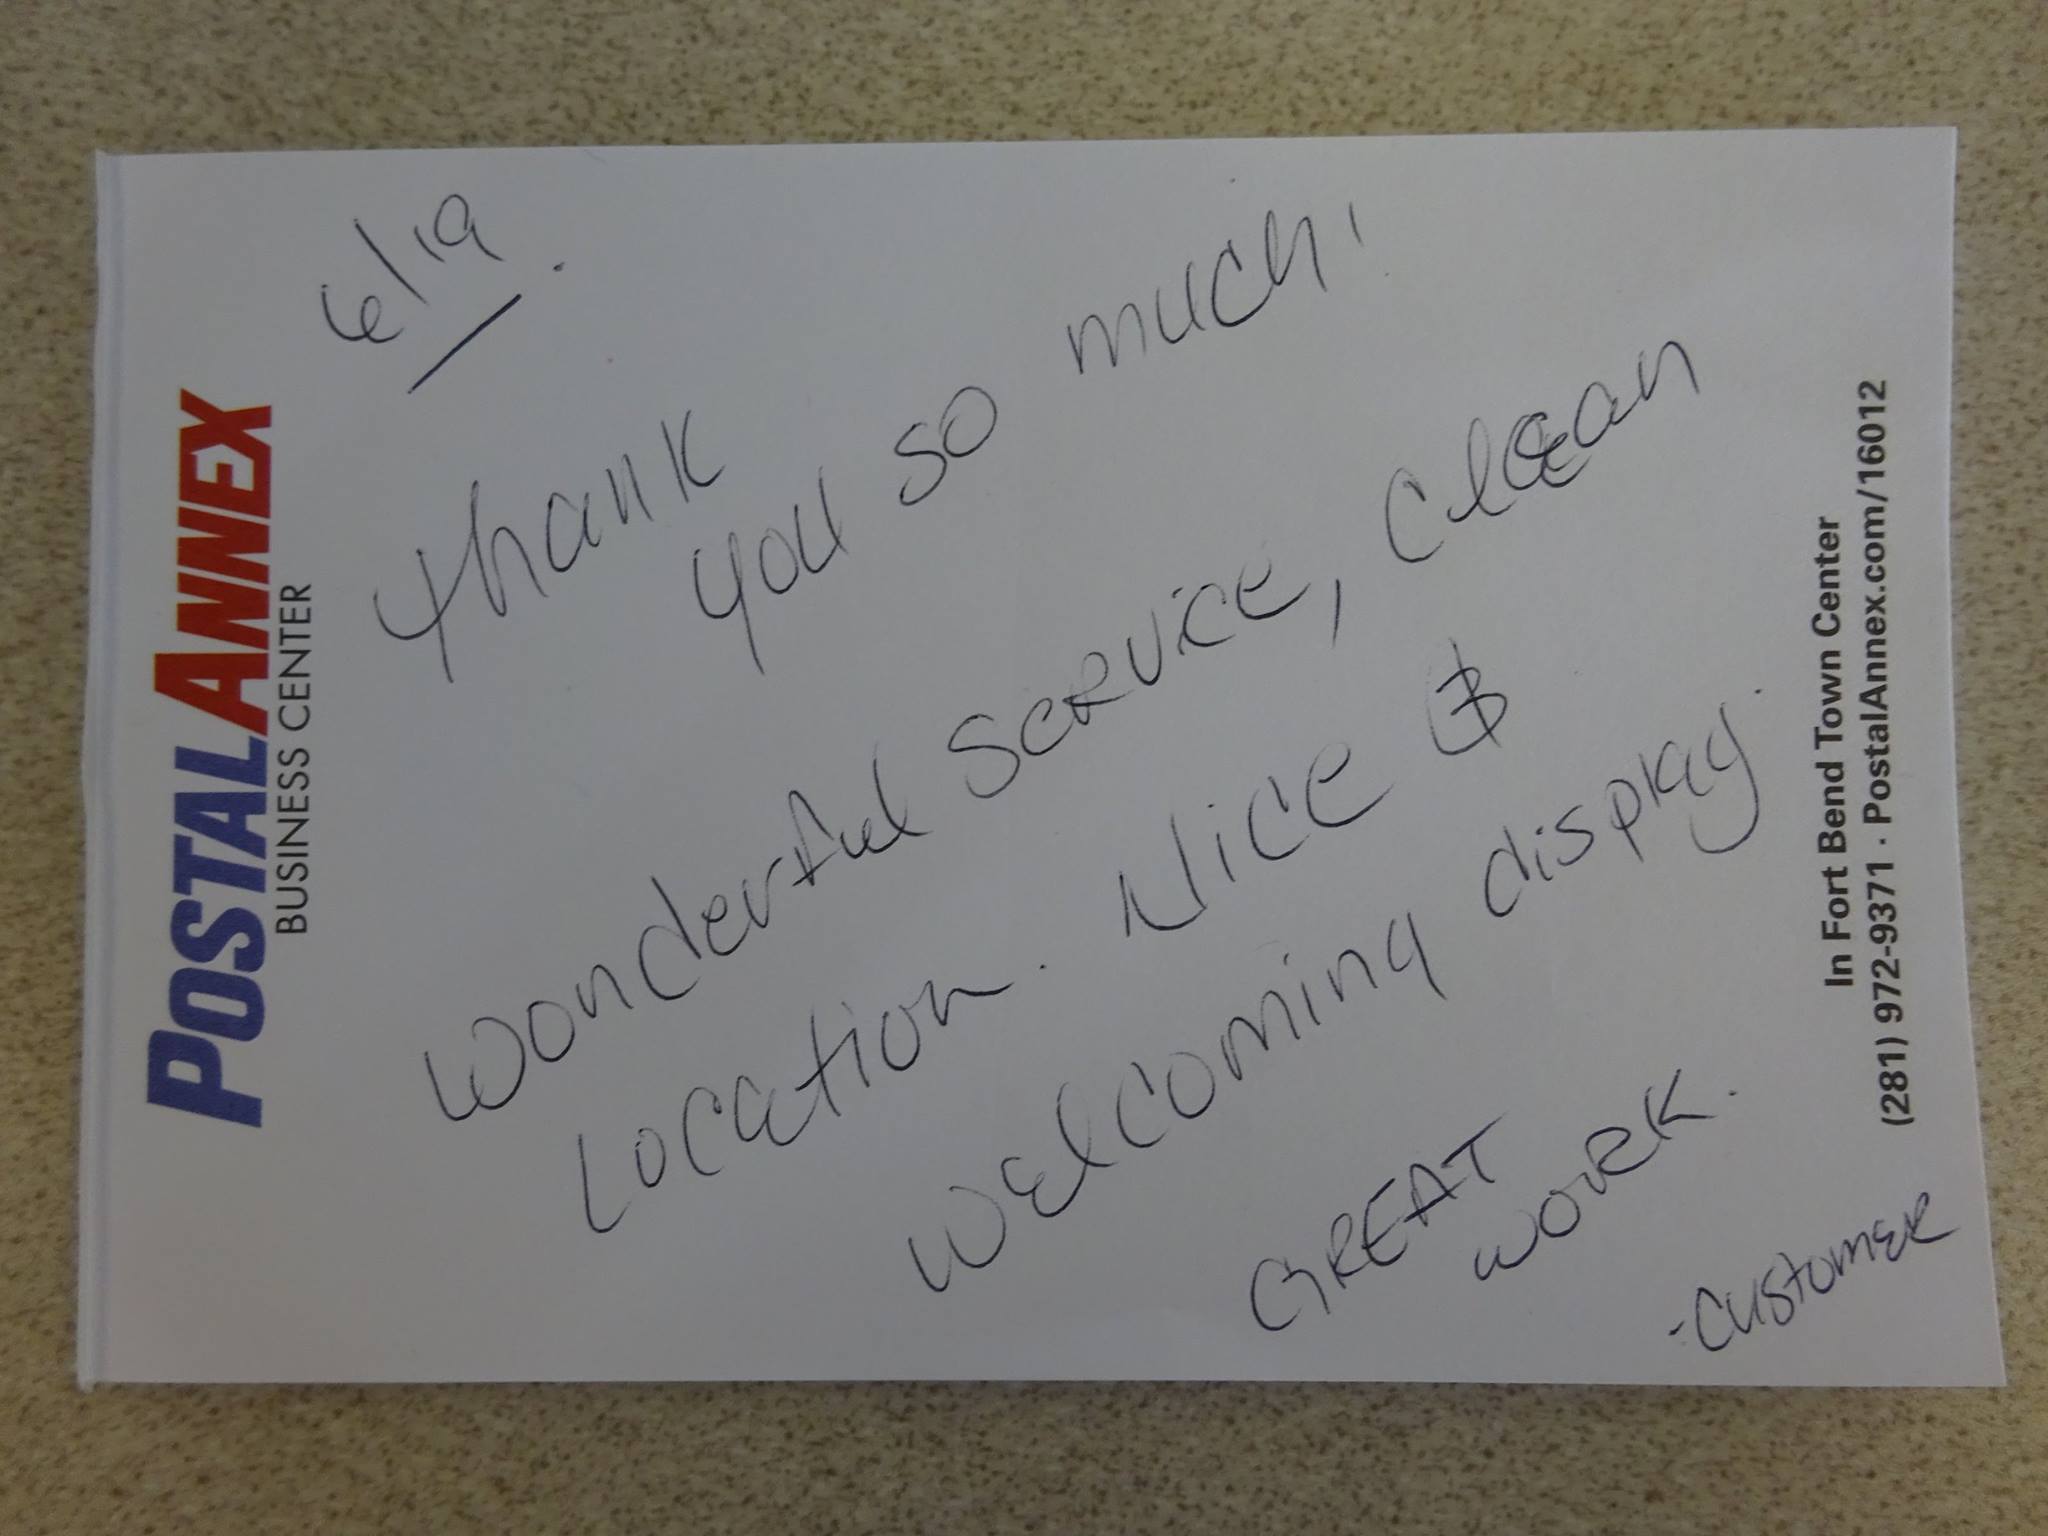 POSTALANNEX
BUSINESS CENTER
6/19.
Thank
you so much.
Wonderful service, clean
location. Nice &
welcoming display.
GREAT
WORK.
-CUSTOMER
In Fort Bend Town Center
(281) 972-9371 · PostalAnnex.com/16012